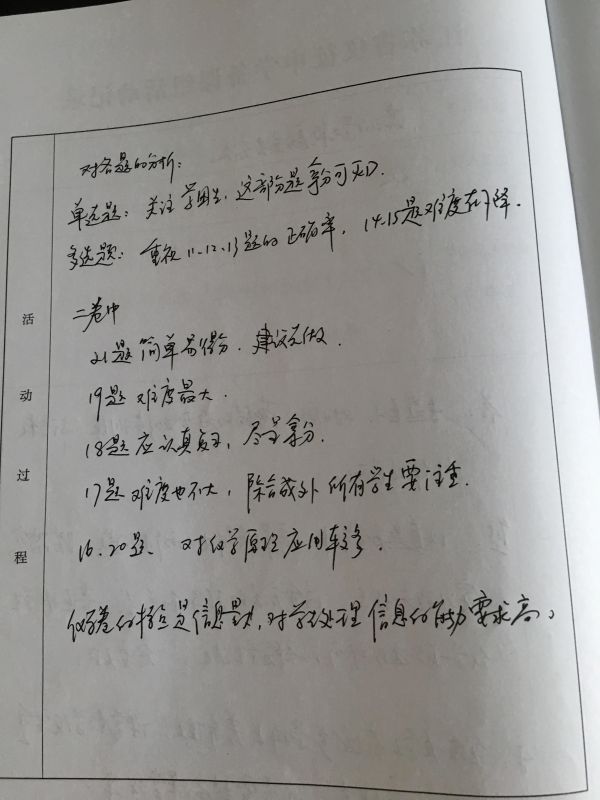 对各题的分析:
单选题: 关注 这部分题拿分可观.
多选题: 重视11.12.13题的正确率, 14.15题难度在下降.
活动过程
二卷中
21题简单易得分. 建议先做.
19题难度最大.
18题应认真复习, 尽量拿分.
17题难度也不大, 除合成外所有学生要注重.
16.20题、对化学原理应用较多.
化学卷的特点是信息量大, 对学生处理信息的能力要求高。